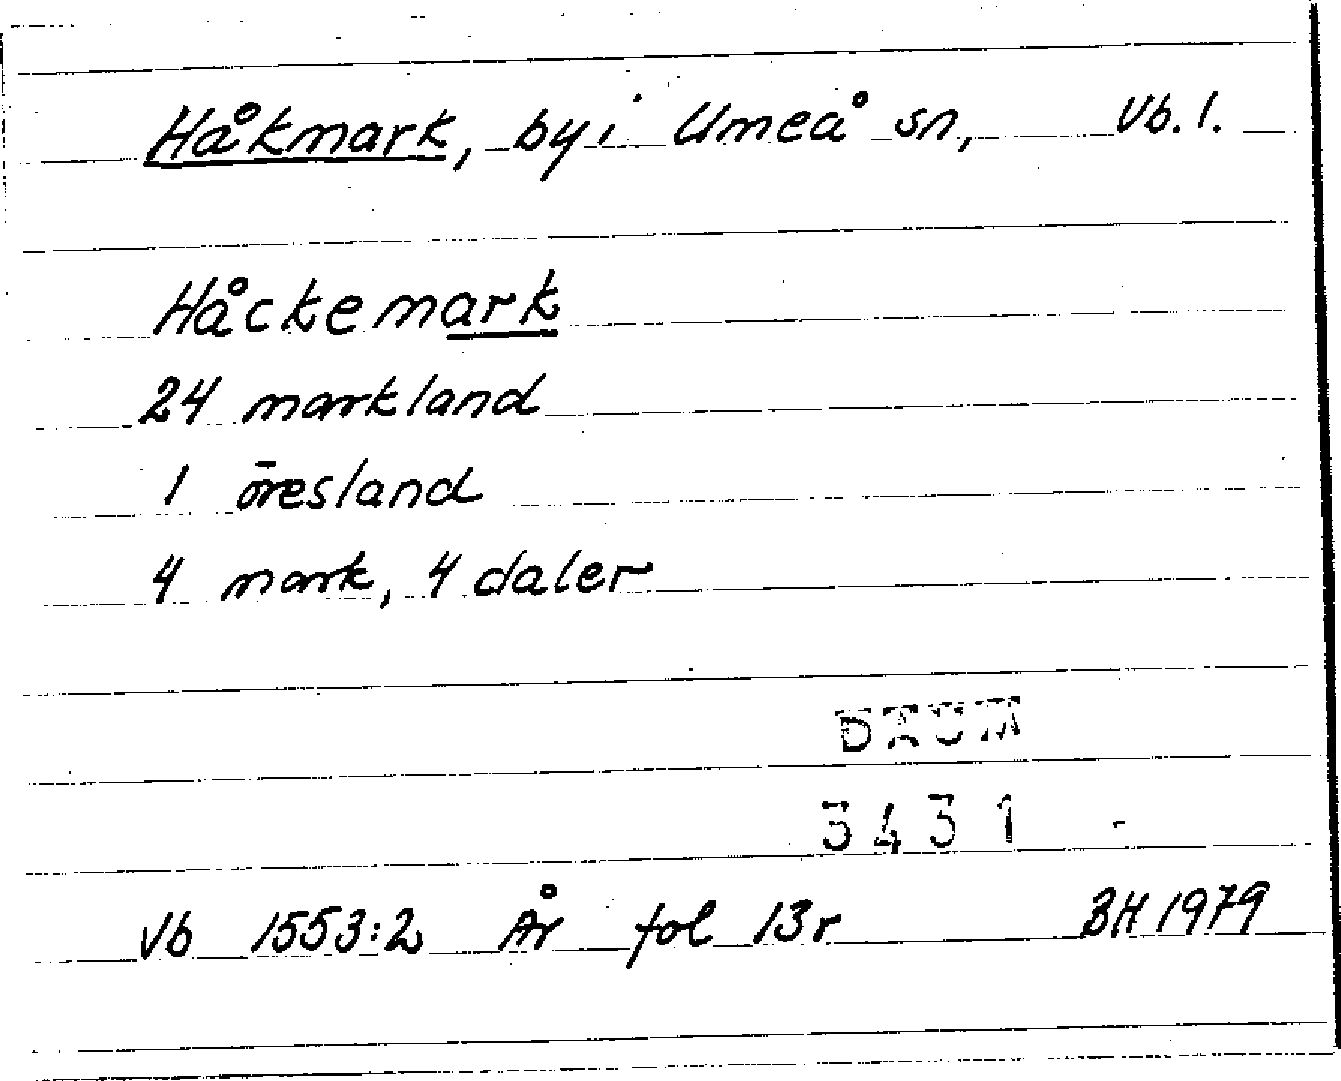 Håkmark, by i Umeå sn, Vb. l.
Håckemark
24 markland
1 öresland
4 mark, 4 daler
DAUM
3431
Vb 1553:2 År fol 13r BH 1979